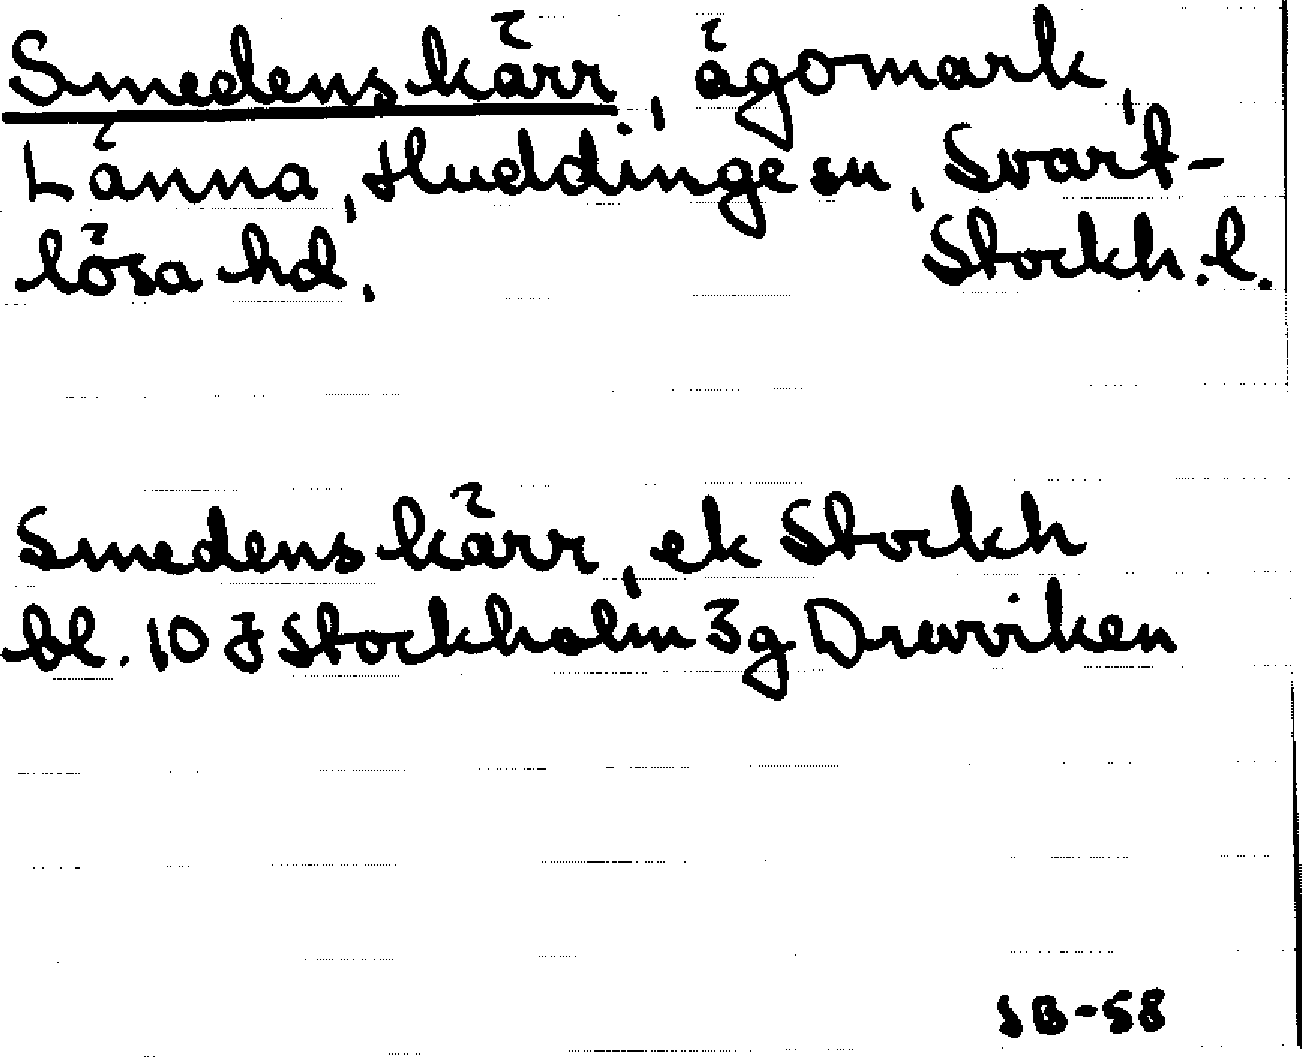 Smedenskärr, ägomark,
Länna, Huddinge sn, Svart-
lösa hd. Stockh. l.
Smedenskärr, ek Stockh
bl. 10 J Stockholm 3g Drevviken
SB-58